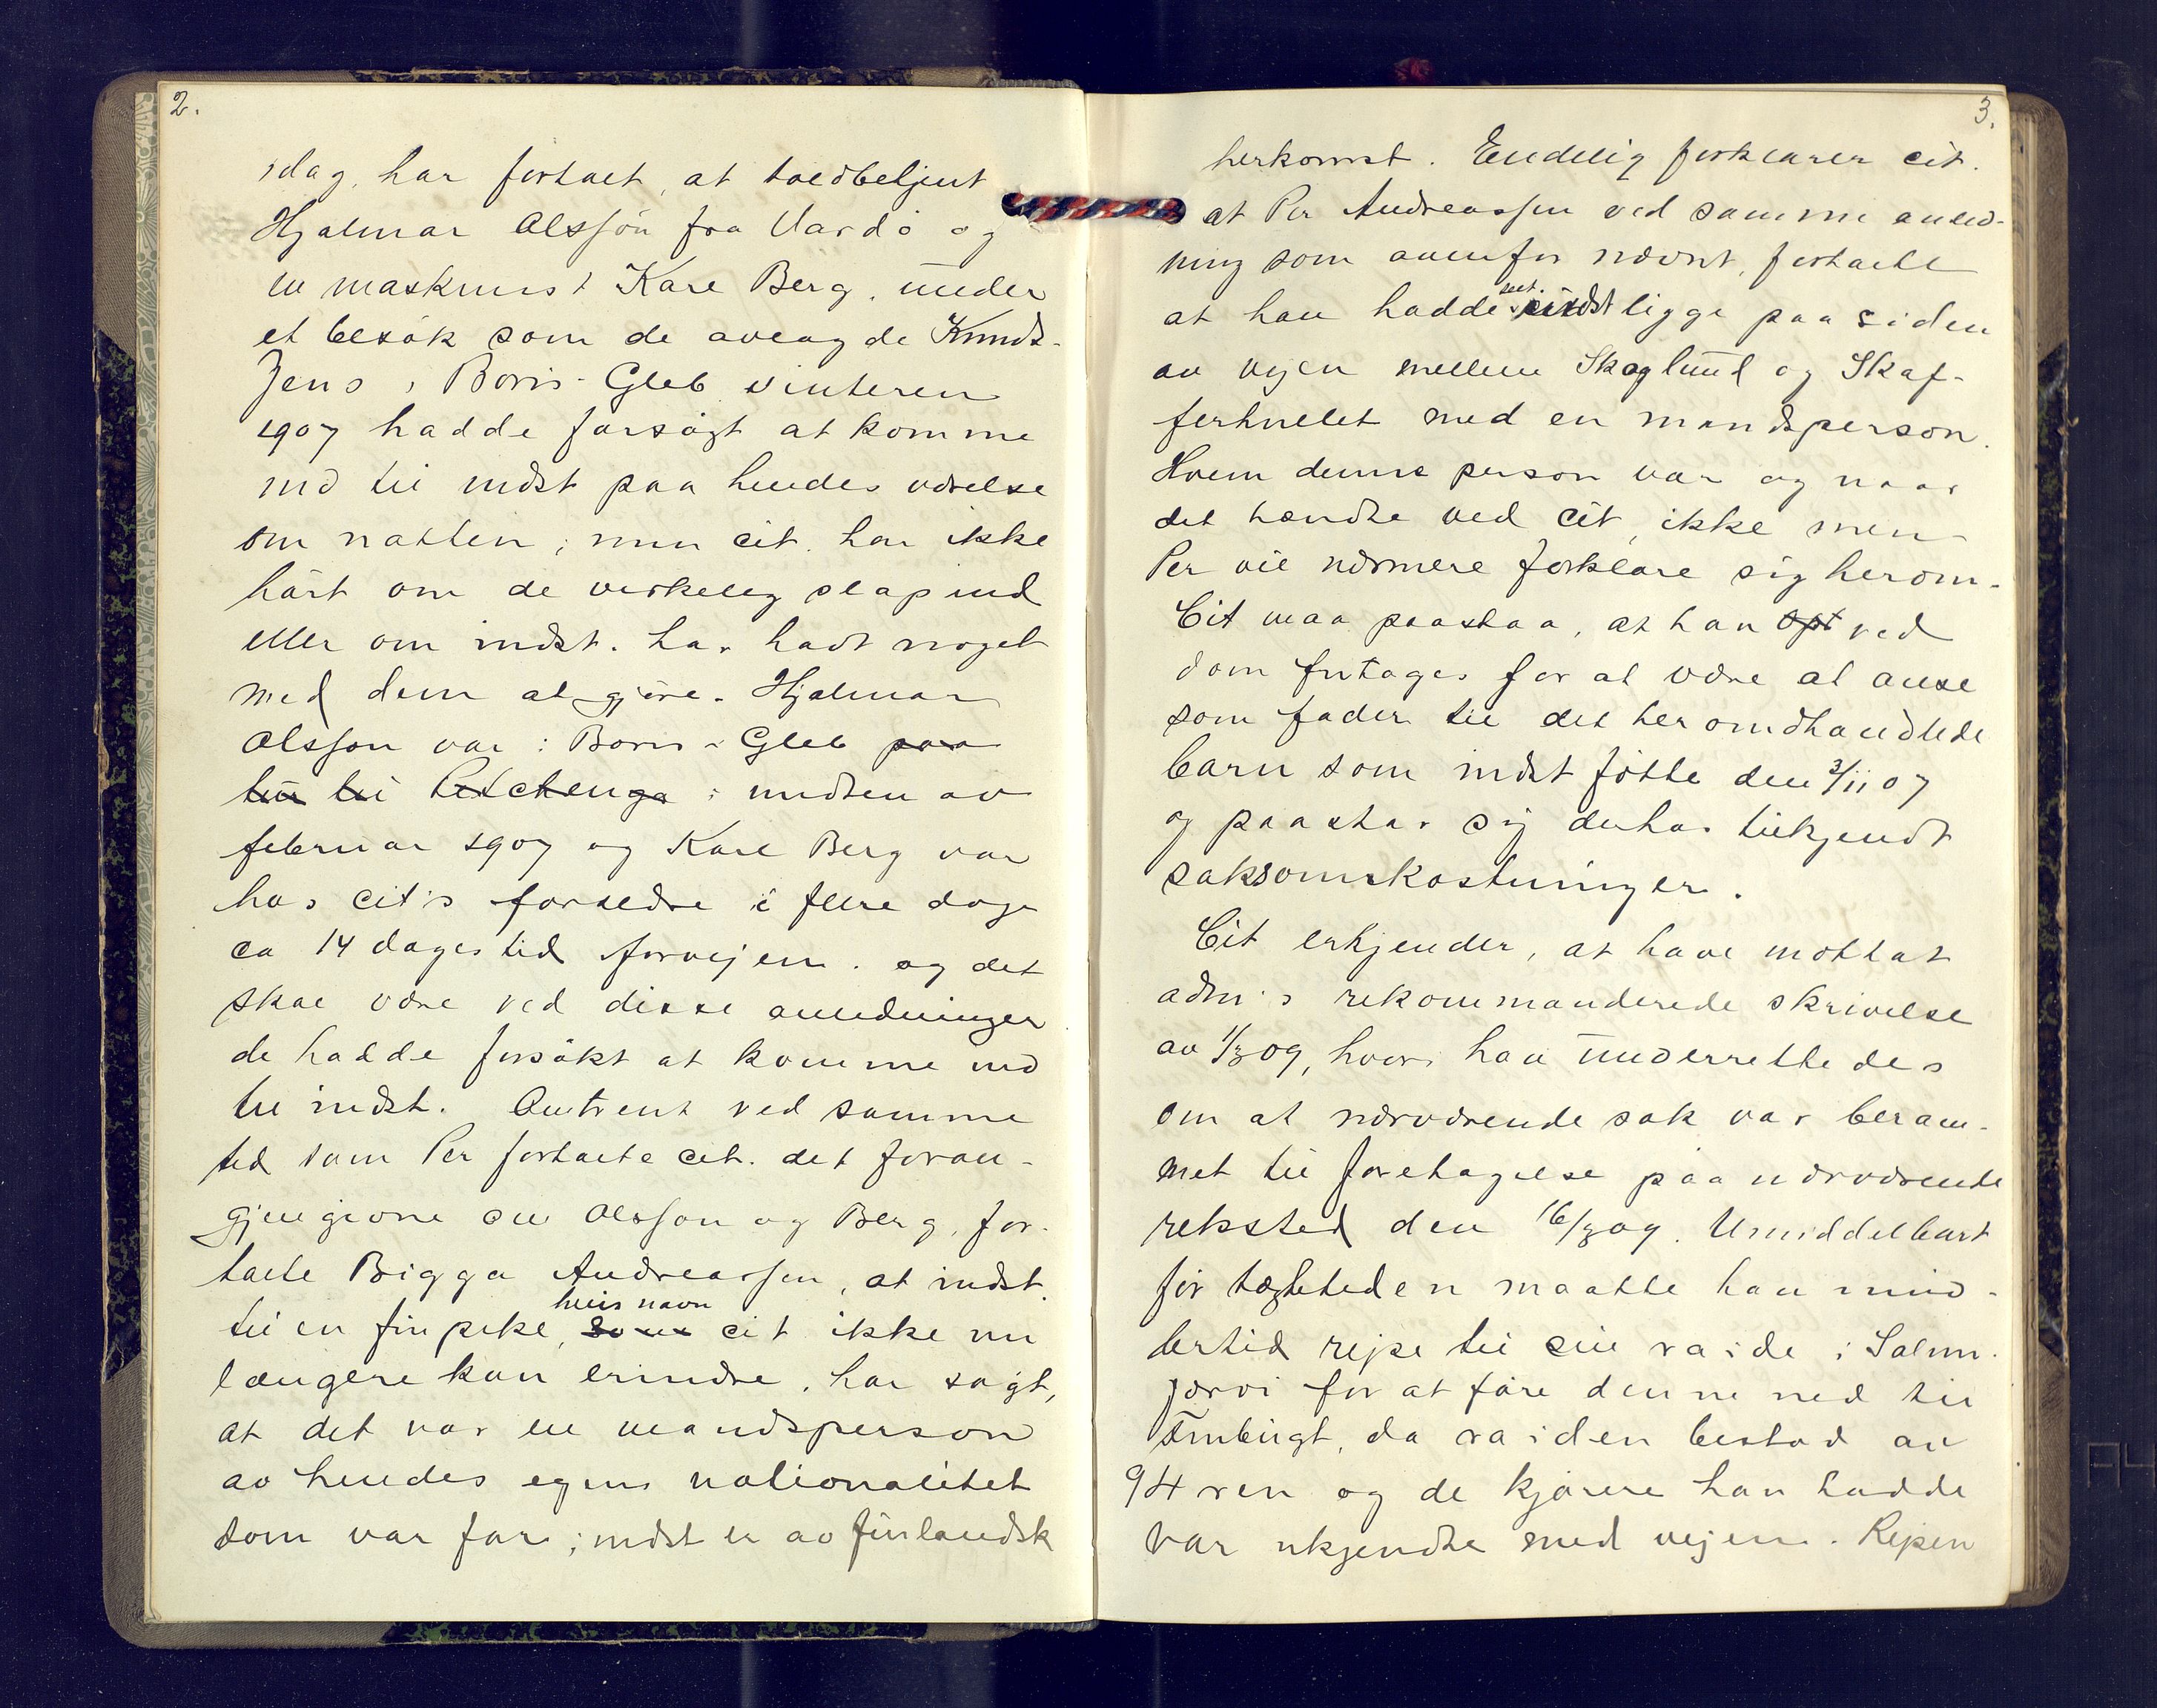 2.
idag, har fortalt, at toldbetjent
Hjalmar Olsson fra Vardö og
en maskinist Kare Berg, under
et besök som de avlagde Knuds-
Jens i Boris-Gleb vinteren
1907 hadde forsögt at komme
ind til indst paa hendes værelse
om natten; men cit. har ikke
hört om de virkelig slap ind
eller om indst. har hadt noget
med dem at gjöre. Hjalmar
Olsson var i Boris-Gleb paa
tur til Petchenga i midten av
februar 1907 og Kare Berg var
hos cit's forældre i flere dage
ca 14 dages tid forvejen. og det
skal være ved disse anledninger
de hadde forsökt at komme ind
til indst. Omtrent ved samme
tid som Per fortalte cit. det foran-
gjengivne om Olsson og Berg, for-
talte Bigga Andreassen, at indst.
hvis navn
til en finpike, som cit ikke nu
længere kan erindre, har sagt,
at det var en mandsperson
av hendes egen nationalitet
som var far; indst er av finlandsk
3.
herkomst. Endelig forklarer cit.
at Per Andreassen ved samme anled-
ning som ovenfor nævnt, fortalte
seet.
at han hadde indst ligge paa siden
av vejen mellem Skoglund og Skaf-
ferhullet med en mandsperson.
Hvem denne person var og naar
det hændte ved cit, ikke men
Per vil nærmere forklare sig herom.
Cit maa paastaa, at han opt ved
dom fritages for at være at anse
som fader til det her omdhandlede
barn som indst fötte den 3/11 07
og paastar sig derhos tilkjendt
saksomkostninger.
Cit erkjender, at have mottat
adm's rekommanderede skrivelse
av 1/3 09, hvori han underrettedes
om at nærværende sak var beram-
met til foretagelse paa nærværende
retssted den 16/3 09. Umiddelbart
för tægteteden maatte han imid-
lertid rejse til sin raide i Salmi-
jærvi for at före denne ned til
Smbugt, da raiden bestod av
94 ren og de kjörere han hadde
var ukjendte med vejen. Rejsen